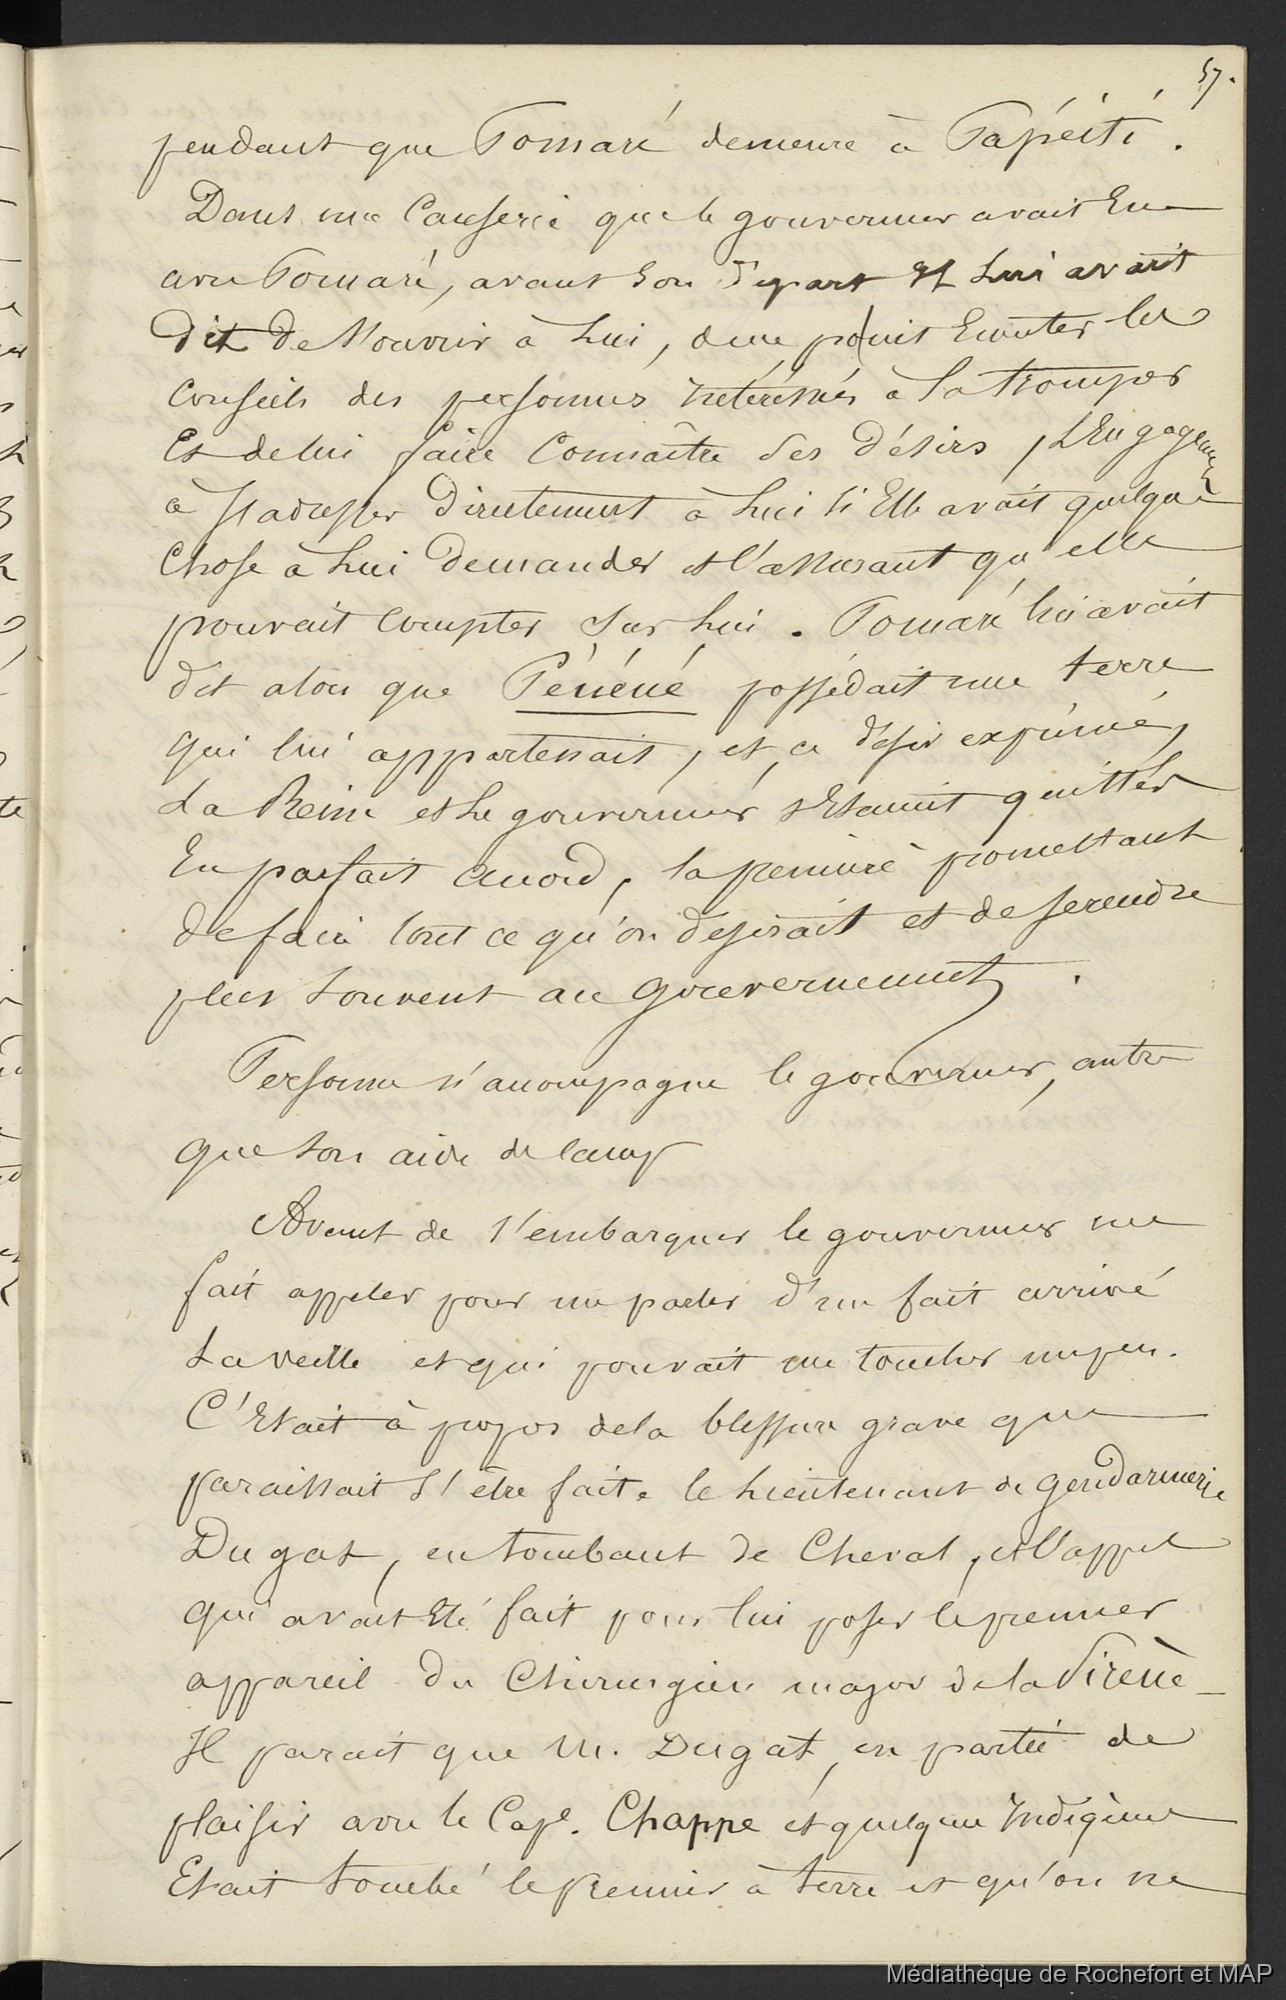 57.
pendant que Pomaré demeure à Papéïti.
Dans une Causerie que le gouverneur avait Eue
avec Pomaré, avant son départ Il lui avait
dit de s'ouvrir à Lui, de ne point Ecouter les
Conseils des personnes intéressées à la tromper
Et de lui faire Connaître ses désirs, l'Engageant
à s'adresser Directement à Lui si Elle avait quelque
Chose à Lui Demander et l'assurant qu'elle
pouvait Compter sur Lui. Pomaré lui avait
dit alors que Péréné possédait une terre
qui lui appartenait, et, ce désir exprimé,
La Reine et Le gouverneur s'Etaient quittés
En parfait accord, la première promettant
de faire tout ce qu'on désirait et de se rendre
plus souvent au gouvernement.
Personne n'accompagne le gouverneur, autre
que son aide de Camp
Avant de s'embarquer le gouverneur me
fait appeler pour me parler d'un fait arrivé
La veille et qui pouvait me toucher un peu.
C'Etait à propos de la blessure grave que
paraissait s'être faite le Lieutenant de gendarmerie
Dugat, en tombant de Cheval, et l'appel
qui avait Eté fait pour lui poser le premier
appareil du Chirurgien major de la Sirène_
Il parait que M. Dugat, en partie de
plaisir avec le Cap.e Chappe et quelques Indigènes
Etait tombé le premier à terre et qu'on ne
Médiathèque de Rochefort et MAP